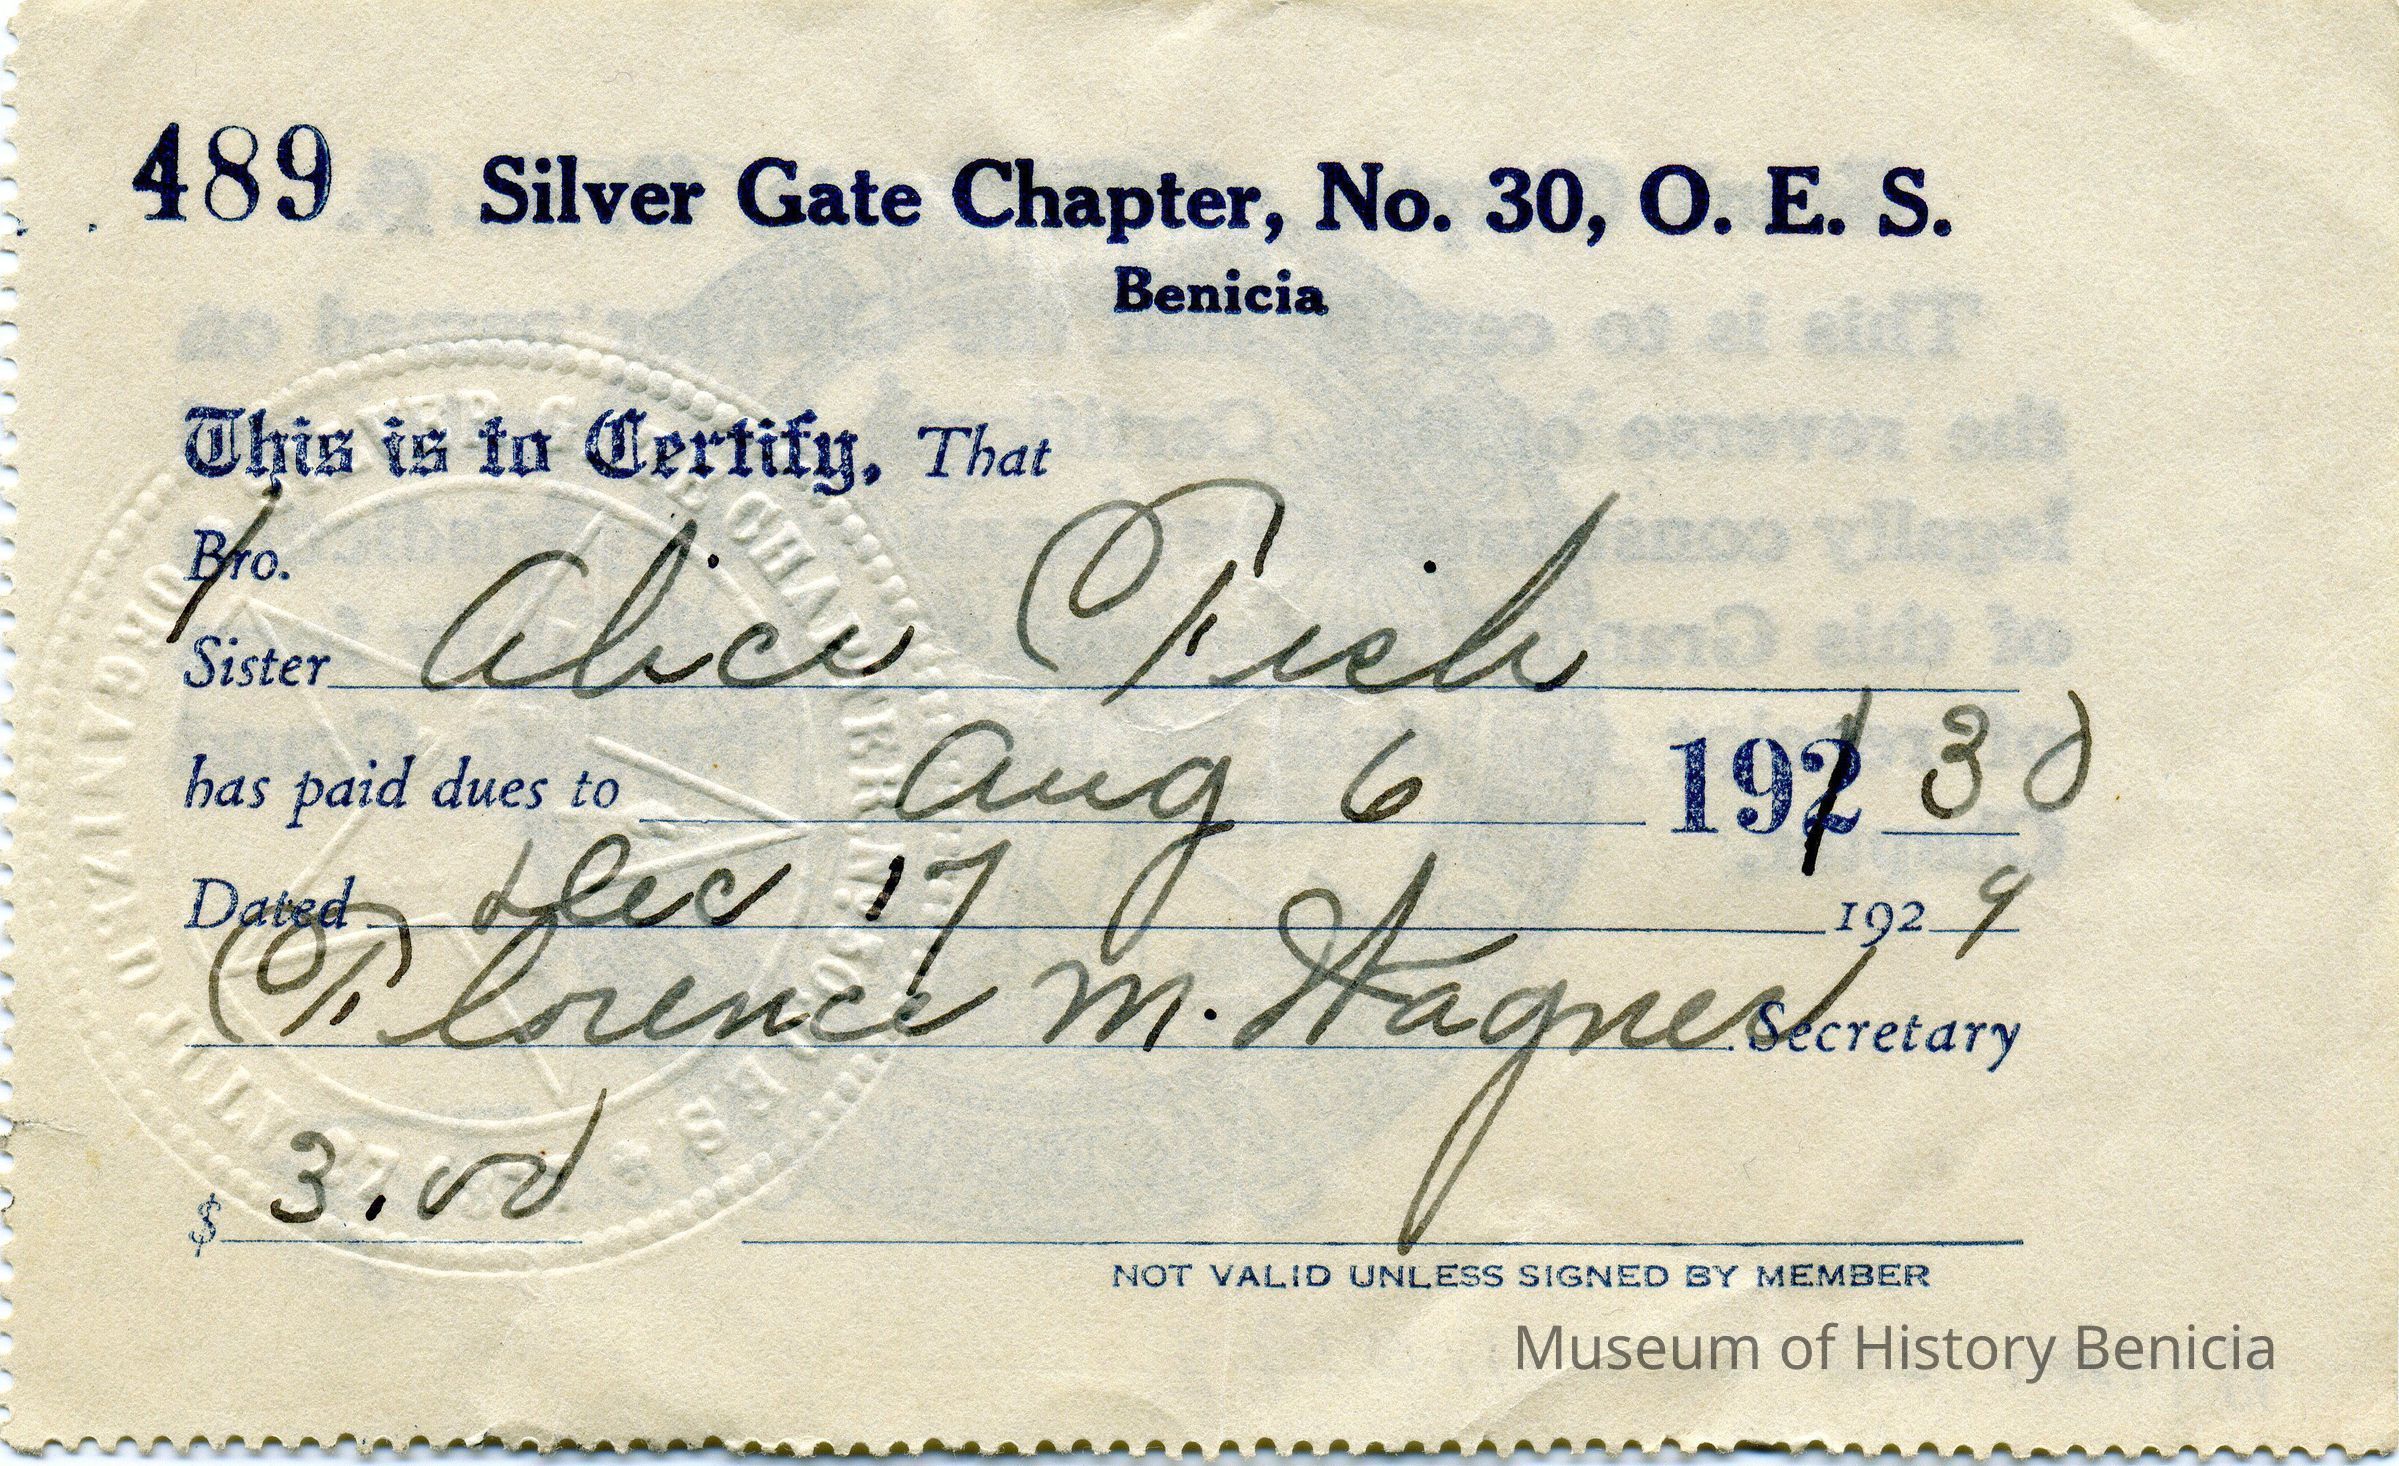 489 Silver Gate Chapter, No. 30, O. E. S.
Benicia
This is to Certify, That
Bro.
Sister Alice Fish
has paid dues to Aug 6 192 30
Dated Dec 17 1929
Florence M. Wagner Secretary
$ 3.00
NOT VALID UNLESS SIGNED BY MEMBER
Museum of History Benicia